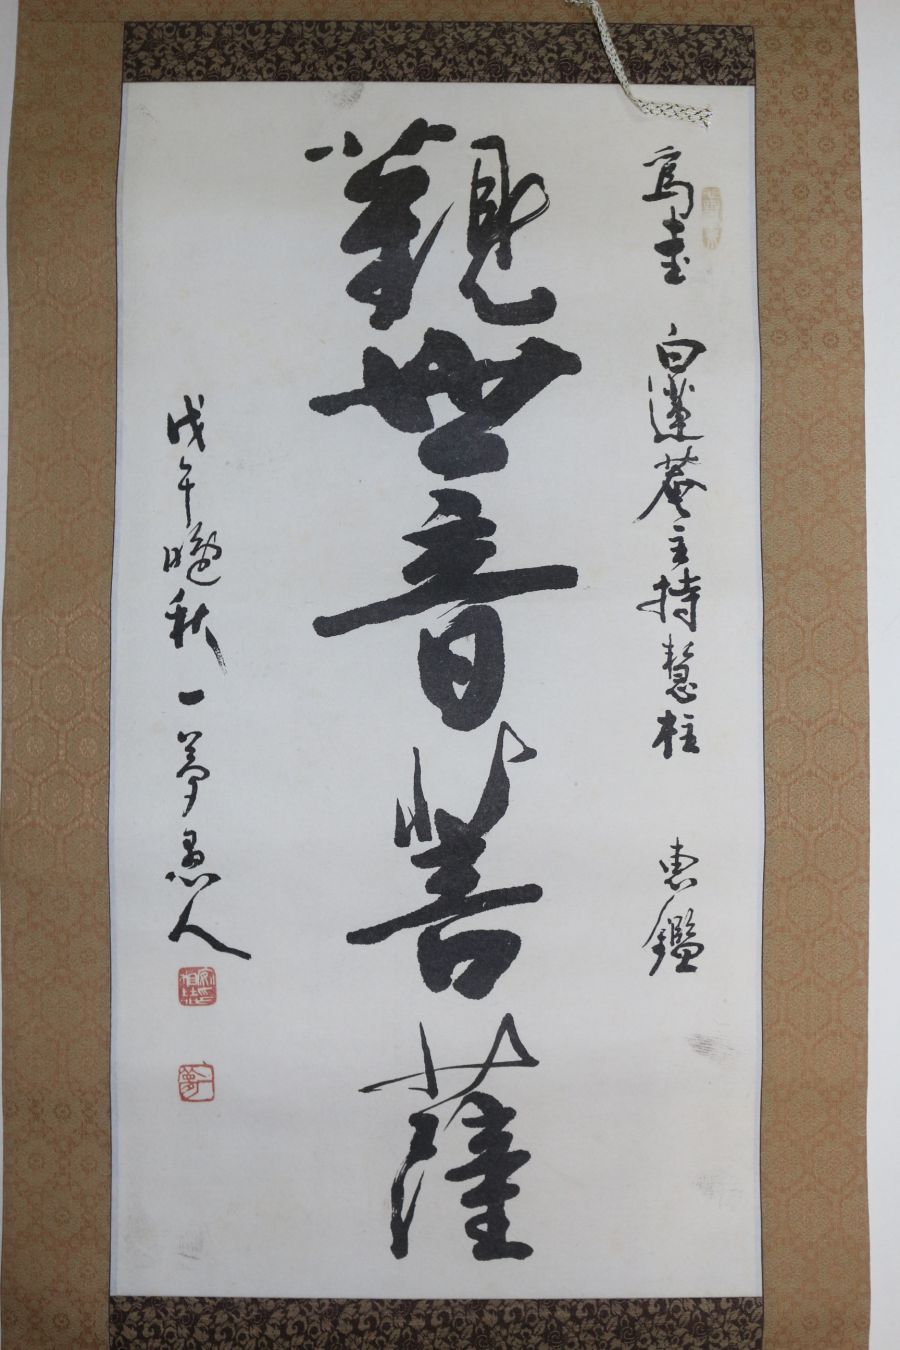 為書 白蓮菴主持慧柱 惠鑑
觀世音菩薩
戊午晚秋 一夢愚人